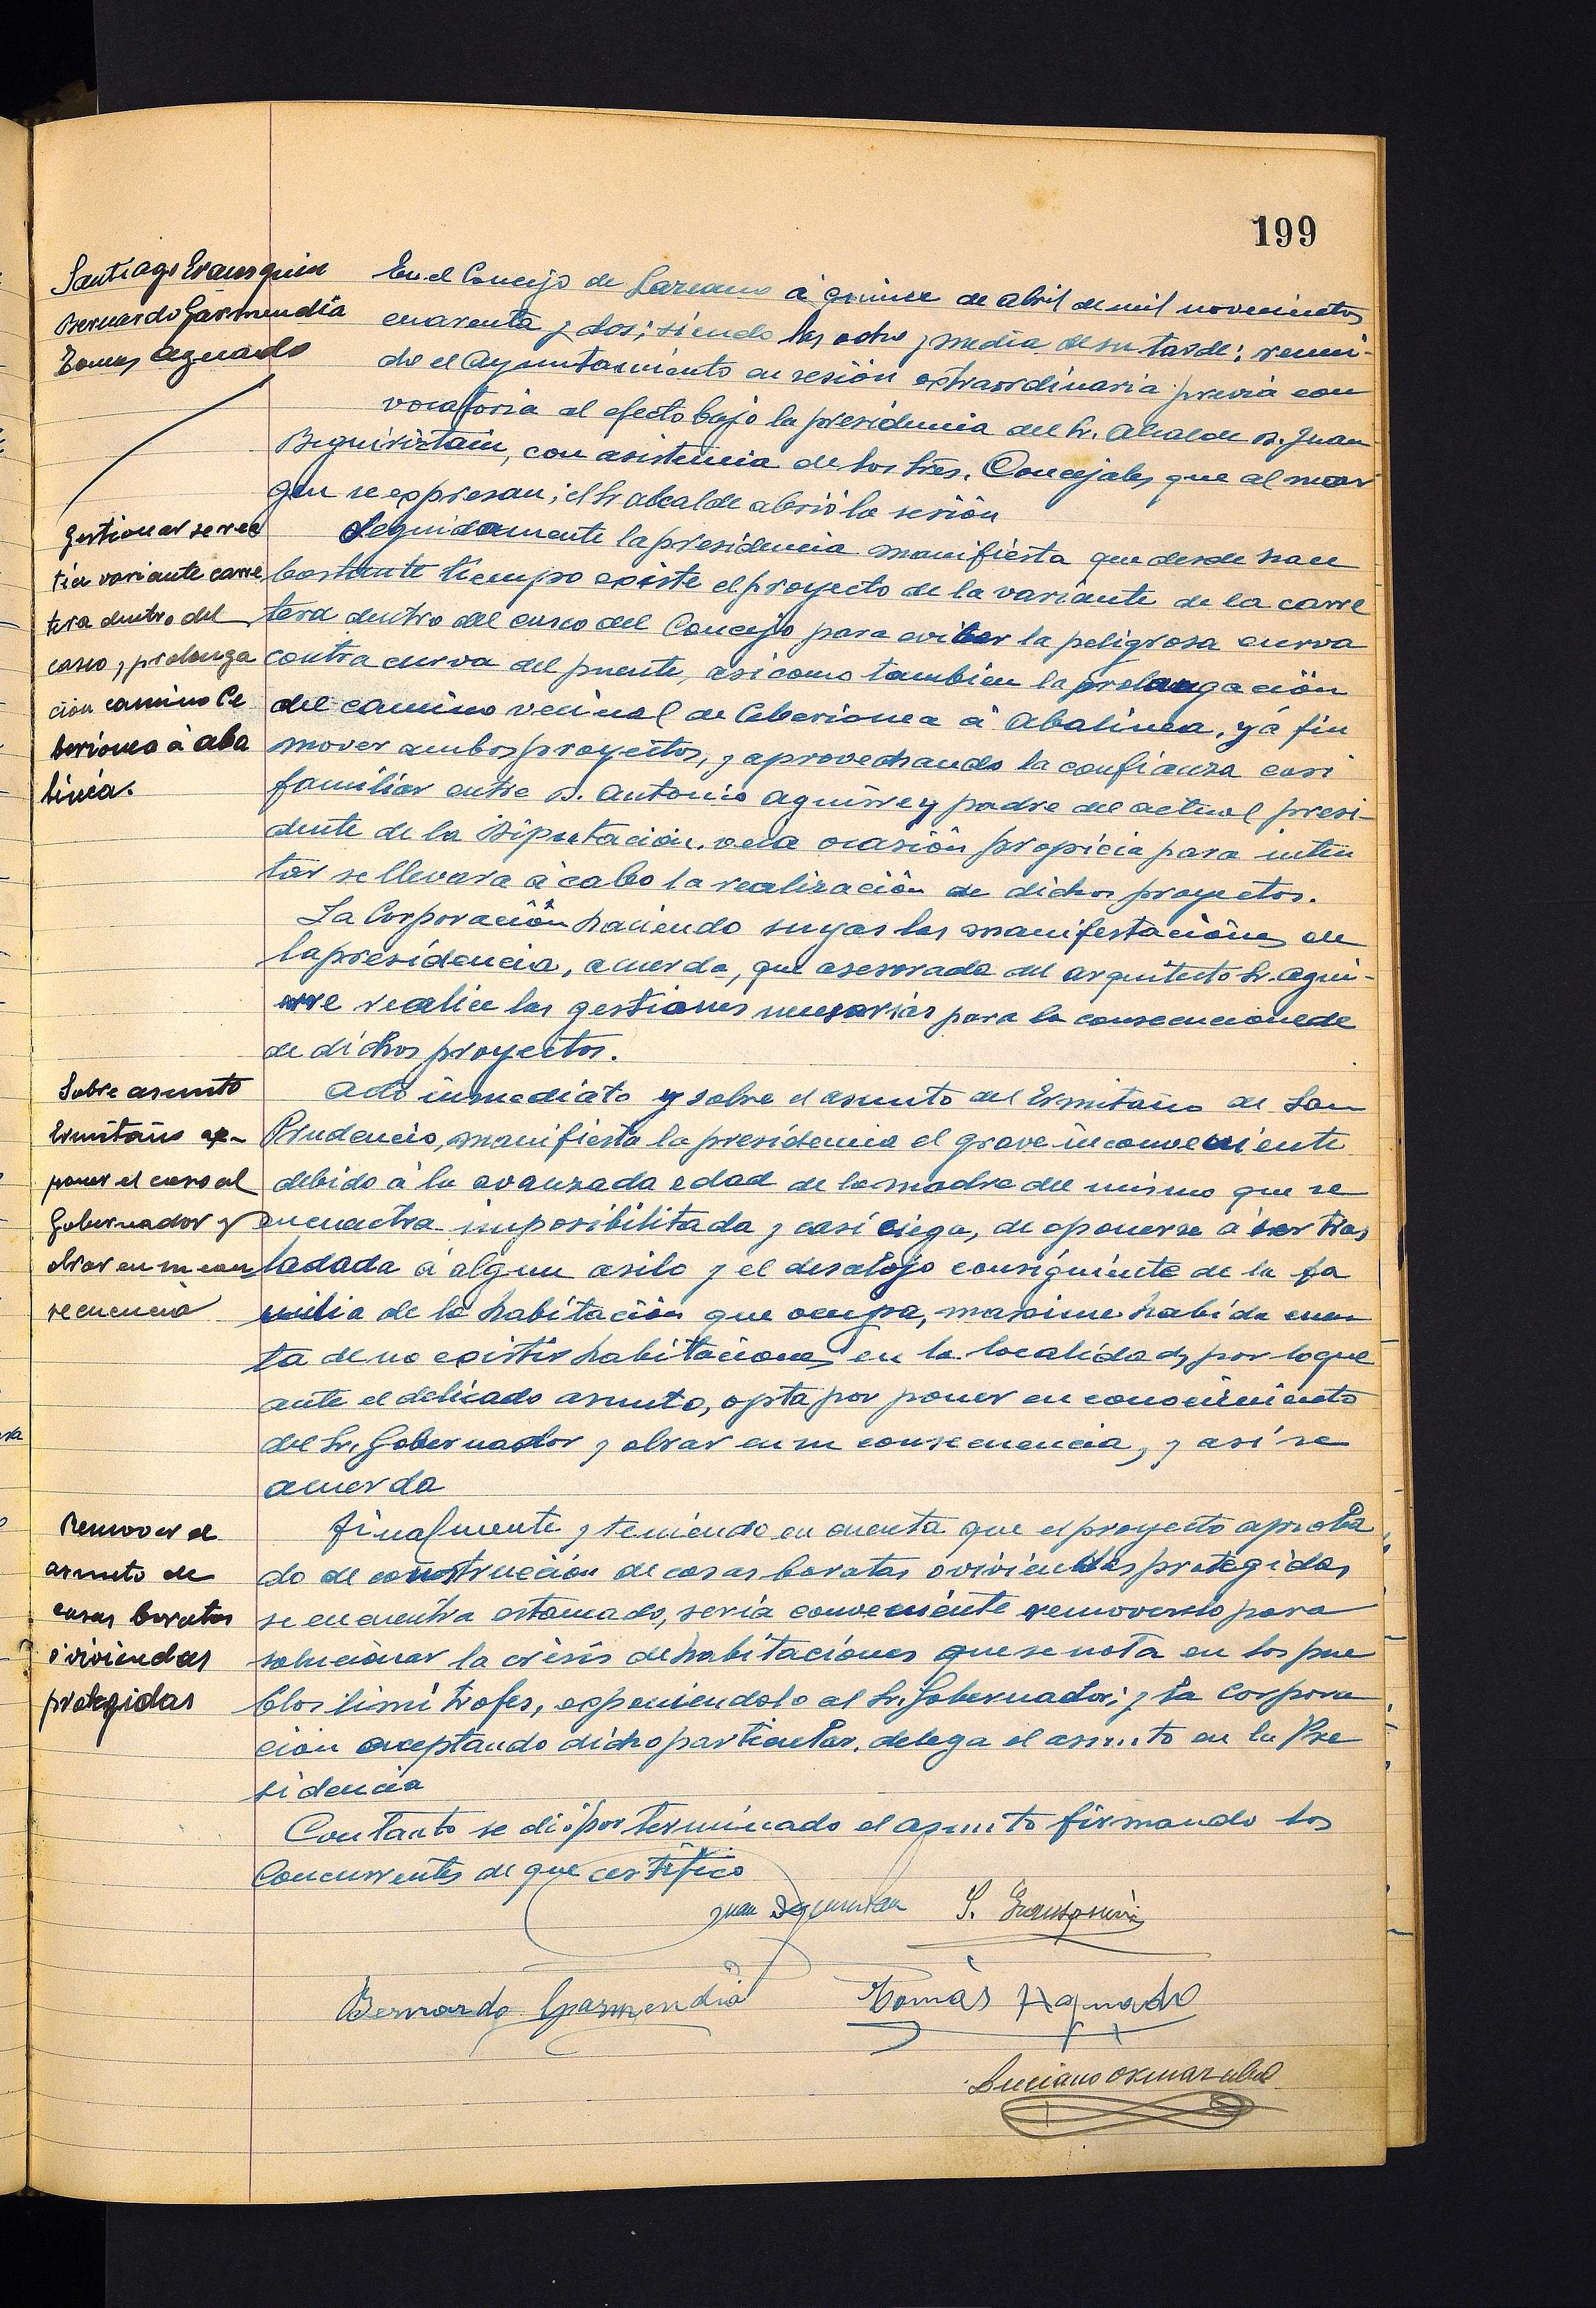 199
Santiago Erausquin
Bernardo Garmendia
Tomas Aguado
En el Concejo de Lazcano á quince de abril de mil novecientos
cuarenta y dos; siendo las ocho y media de su tarde; reuni-
do el Ayuntamiento en sesión extraordinaria previa con
vocatoria al efecto bajo la presidencia del Sr. Alcalde D. Juan
Beguiristain, con asistencia de los Sres. Concejales que al mar
gen se expresan; el Sr alcalde abrió la sesión
Gestionar se rea
tice variante carre
tera dentro del
casco, y prolonga
ción camino Ce
berionea á aba
linea.
Seguidamente la presidencia manifiesta que desde hace
bastante tiempo existe el proyecto de la variante de la carre
tera dentro del casco del Concejo para evitar la peligrosa curva
contra curva del puente, asi como tambien la prolongación
del camino vecinal de Ceberionea á Abalinea, y á fin
mover ambos proyectos, y aprovechando la confianza casi
familiar entre D. Antonio Aguirre y padre del actual presi-
dente de la Diputación, vela ocasión propicia para inten
tar se llevara á cabo la realización de dichos proyectos.
La Corporación haciendo suyas las manifestaciónes de
la presidencia, acuerda, que asesorada del arquitecto Sr. Agui-
rre realice las gestiones necesarias para la consecucion de
de dichos proyectos.
Sobre asunto
Ermitaño ex-
poner el caso al
Gobernador y
obrar en su con
secuencia
Acto inmediato y sobre el asunto del Ermitaño de San
Prudencio, manifiesta la presidencia el grave inconveniente
debido á la avanzada edad de la madre del mismo que se
encuentra imposibilitada y casi ciega, de oponerse á ser tras
ladada á algun asilo y el desalojo consiguiente de la fa
milia de la habitación que ocupa, maxime habida cuen
ta de no existir habitaciones en la localidad, por lo que
ante el delicado asunto, opta por poner en conocimiento
del Sr. Gobernador y obrar en su consecuencia, y así se
acuerda
Remover el
asunto de
casas baratas
o viviendas
protegidas
Finalmente y teniendo en cuenta que el proyecto aproba
do de construcción de casas baratas o viviendas protegidas
se encuentra estancado, seria conveniente removerlo para
solucionar la crisis de habitaciones que se nota en los pue
blos limitrofes, exponiendolo al Sr. Gobernador; y la Corpora
ción aceptando dicho particular, delega el asunto en la Pre
sidencia
Con tanto se dió por terminado el asunto firmando los
Concurrentes de que certifico
Juan Beguiristain
S. Erausquin
Bernardo Garmendia
Tomás Aguado
Luciano